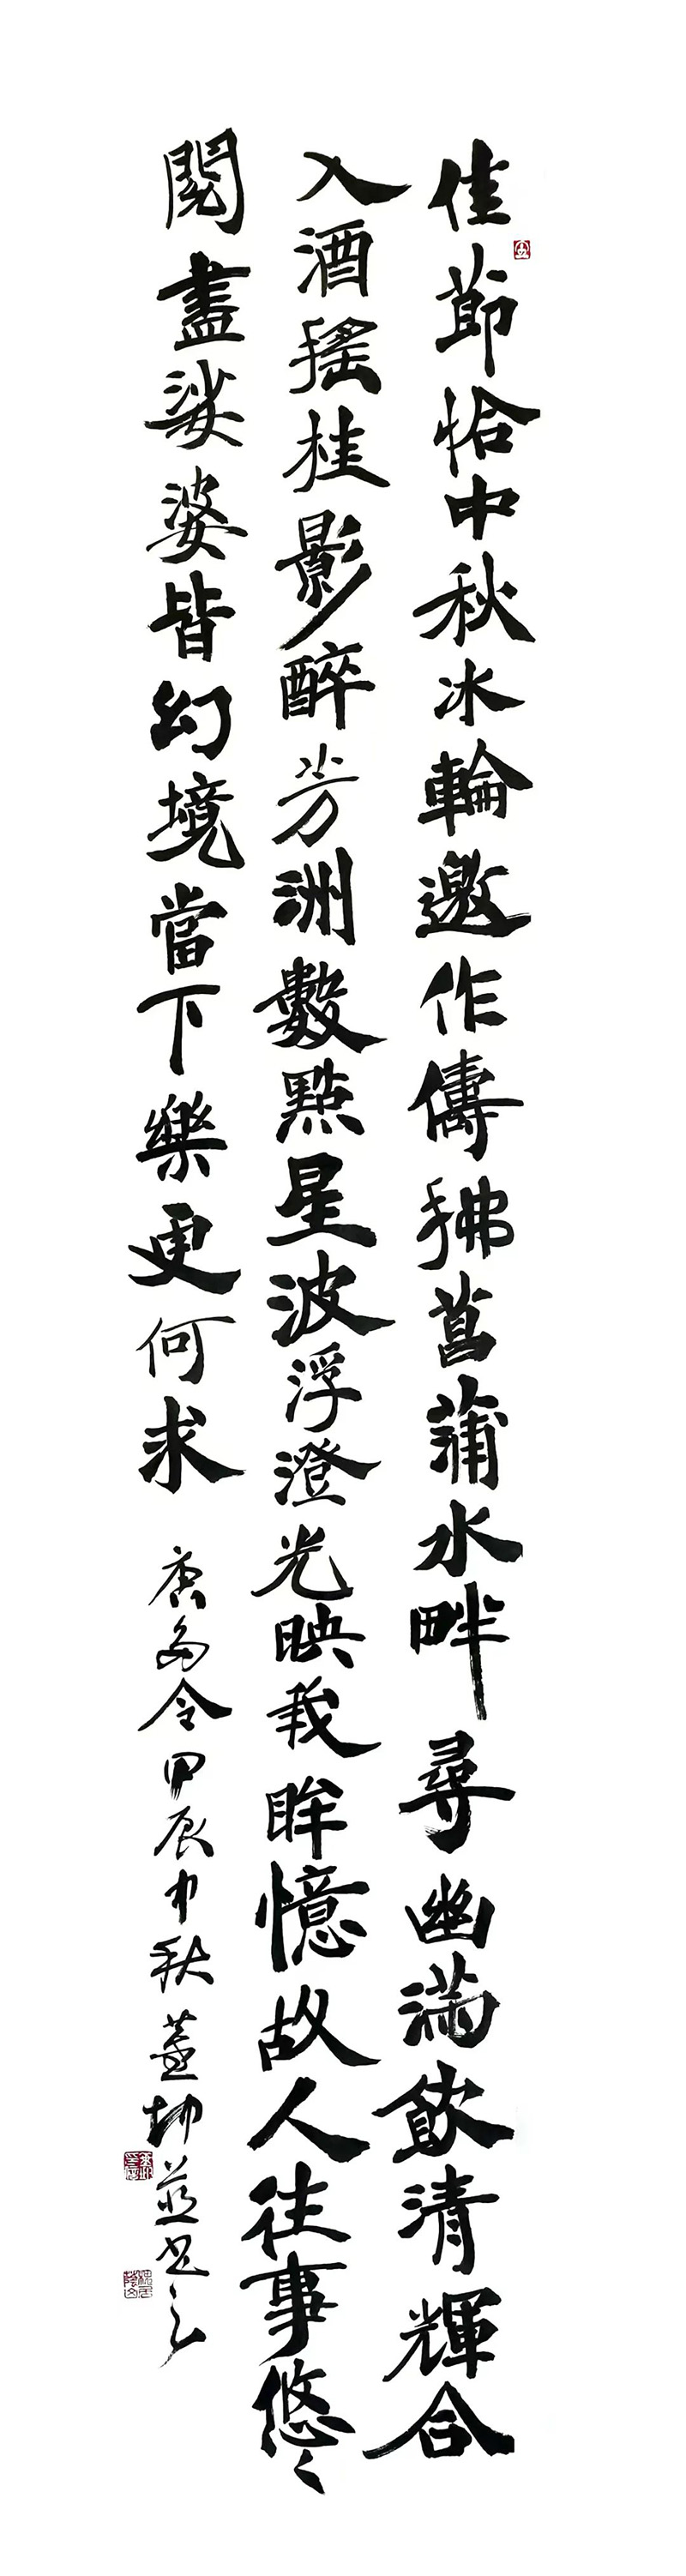 佳節恰中秋冰輪邀作儔拂菖蒲水畔尋幽滿飲清輝合
入酒搖桂影醉芳洲數點星波浮澄光映我眸憶故人往事悠々
閱盡娑婆皆幻境當下樂更何求 唐多令甲辰中秋蓋坤並書之